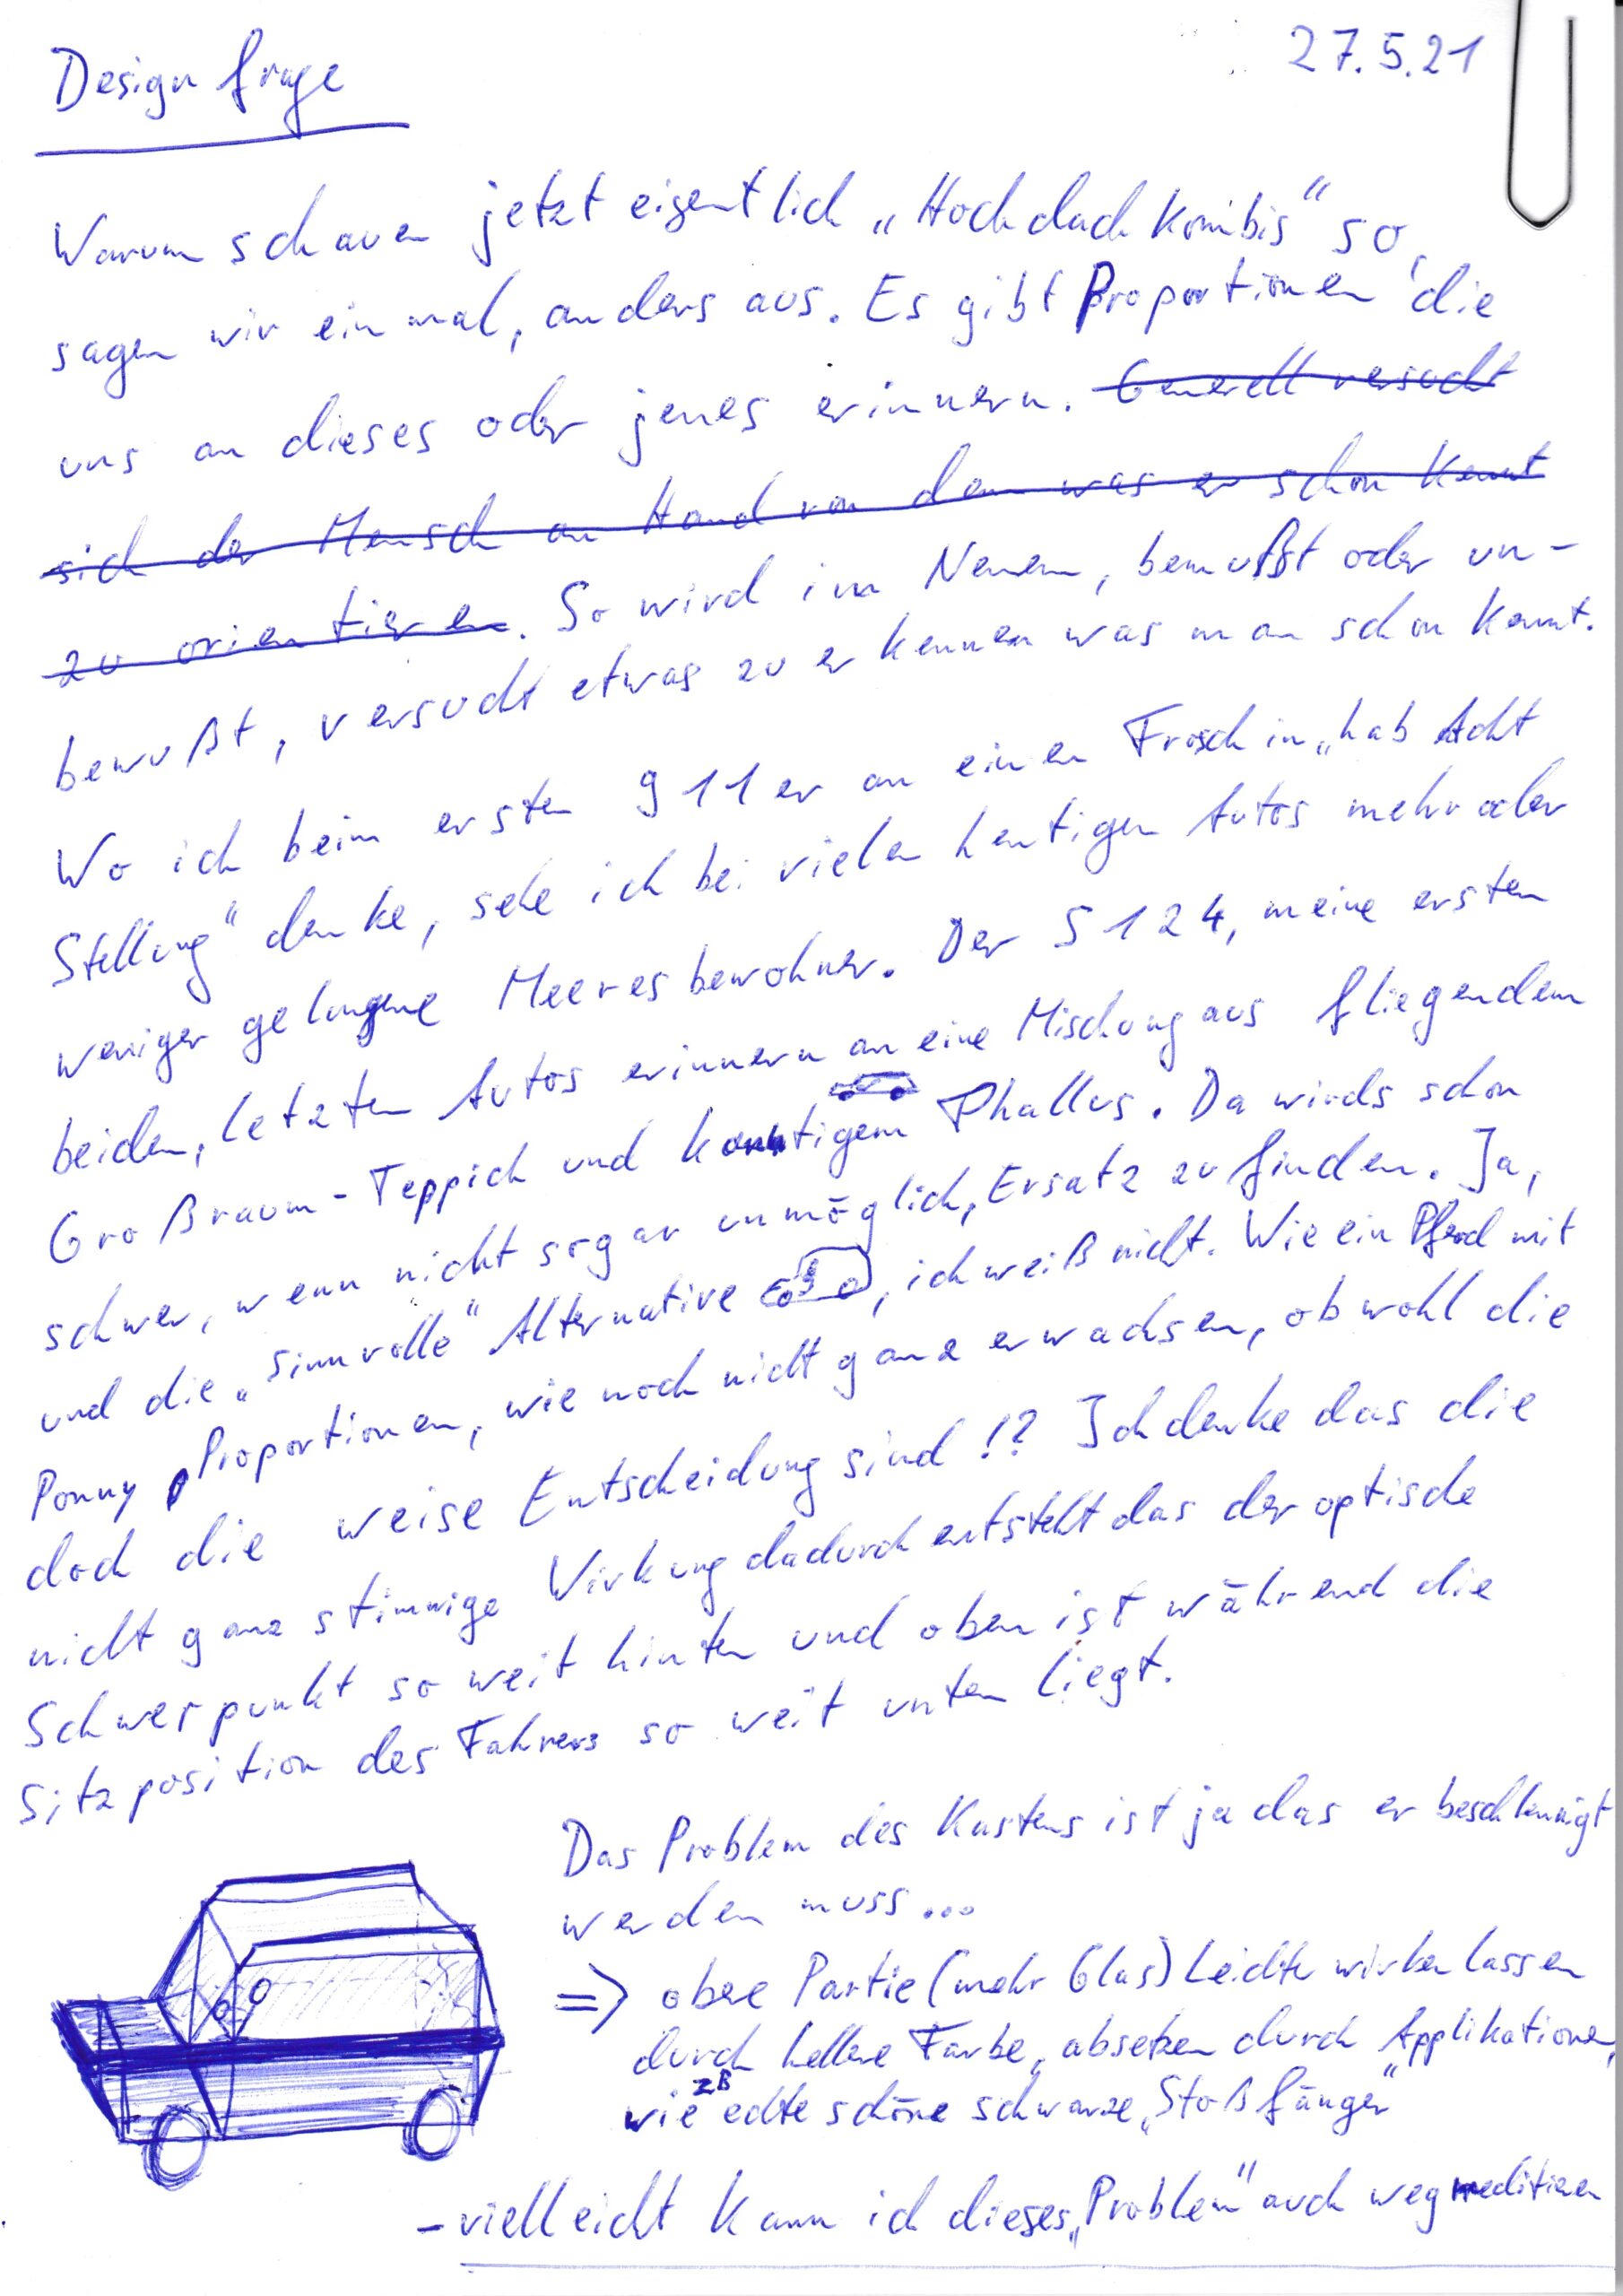 Designfrage
27.5.21
Warum schauen jetzt eigentlich „Hochdachkombis" so,
sagen wir einmal, anders aus. Es gibt Proportionen die
uns an dieses oder jenes erinnern. Generell versucht
sich der Mensch an Hand von dem was er schon kennt
zu orientieren. So wird im Neuem, bewußt oder un-
bewußt, versucht etwas zu erkennen was man schon kennt.
Wo ich beim ersten 911er an einen Frosch in „hab Acht
Stellung" denke, sehe ich bei vielen heutigen Autos mehr oder
weniger gelungene Meeresbewohner. Der S124, meine ersten
beiden, letzten Autos erinnern an eine Mischung aus fliegendem
Großraum-Teppich und kantigem Phallus. Da wirds schon
schwer, wenn nicht sogar unmöglich, Ersatz zu finden. Ja,
und die „sinnvolle" Alternative, ich weiß nicht. Wie ein Pferd mit
Ponny Proportionen, wie noch nicht ganz erwachsen, obwohl die
doch die weise Entscheidung sind!? Ich denke das die
nicht ganz stimmige Wirkung dadurch entsteht das der optische
Schwerpunkt so weit hinten und oben ist während die
Sitzposition des Fahrers so weit unten liegt.
Das Problem des Kastens ist ja das er beschleunigt
werden muss...
=> obere Partie (mehr Glas) Leichte wirken lassen
durch hellere Farbe, absetzen durch Applikationen,
wie zB echte schöne schwarze „Stoßfänger"
- vielleicht kann ich dieses „Problem" auch weg meditieren